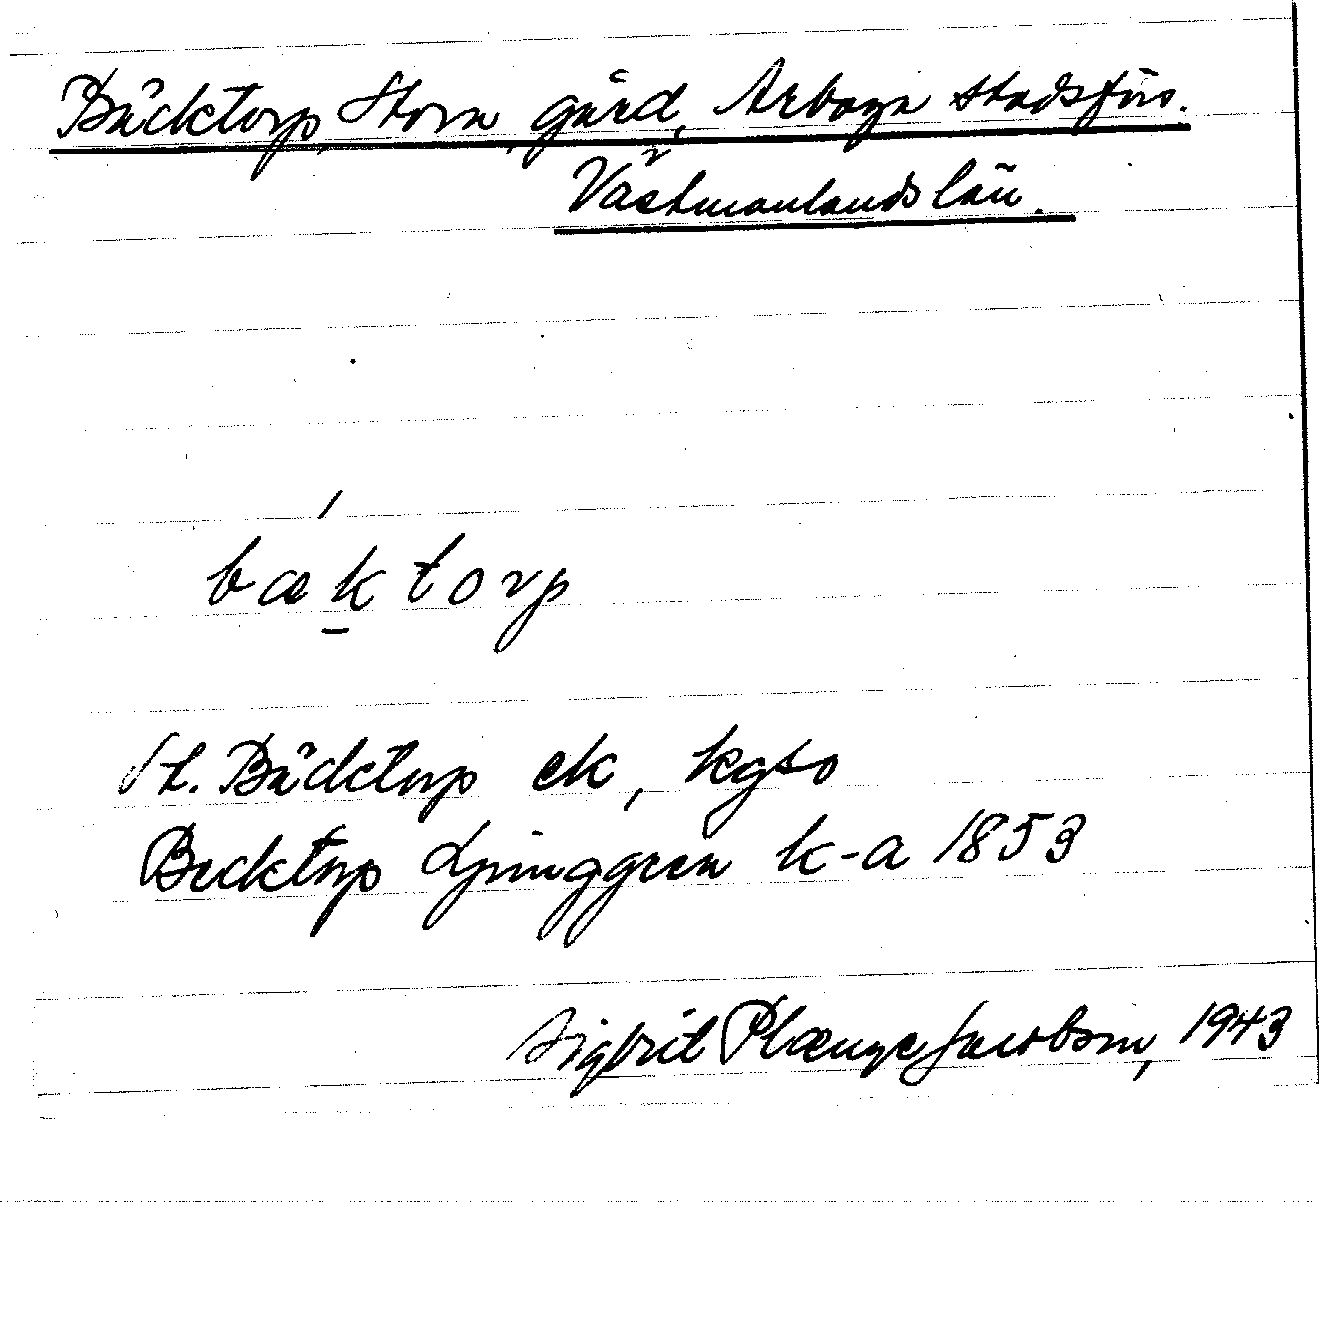 Bäcktorp, Stora, gård, Arboga stadsförs.
Västmanlands län.
bæktorp
St. Bäcktorp ek, kgso
Becktorp Ljunggren k-a 1853
Sigbrit Plænge Jacobson, 1943